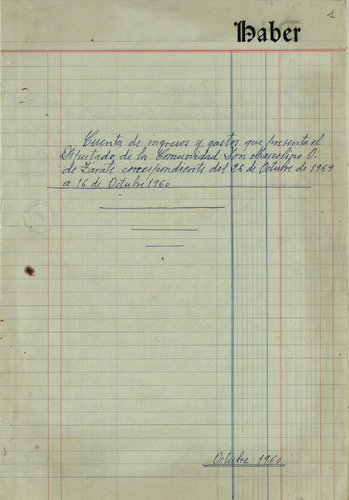 1
Haber
Cuenta de ingresos y gastos que presenta el
Diputado de la Comunidad Don Marcelino O.
de Zarate correspondiente del 25 de Octubre de 1959
a 16 de Octubre 1960
Octubre 1960